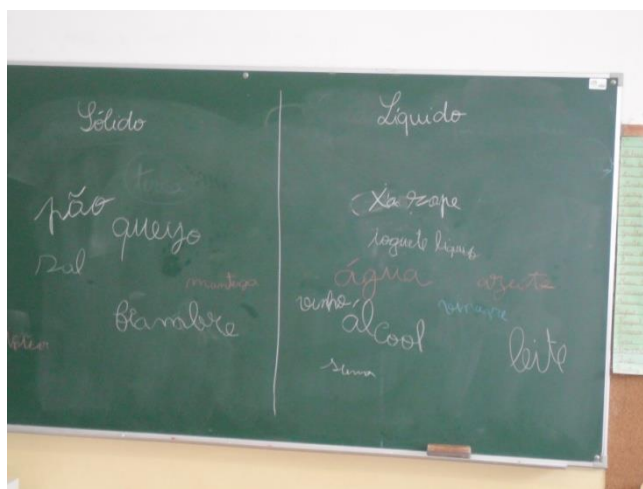 Sólido
pão
queijo
sal
manteiga
fiambre
Líquido
Xarope
iogurte líquido
água azeite
vinho álcool
leite